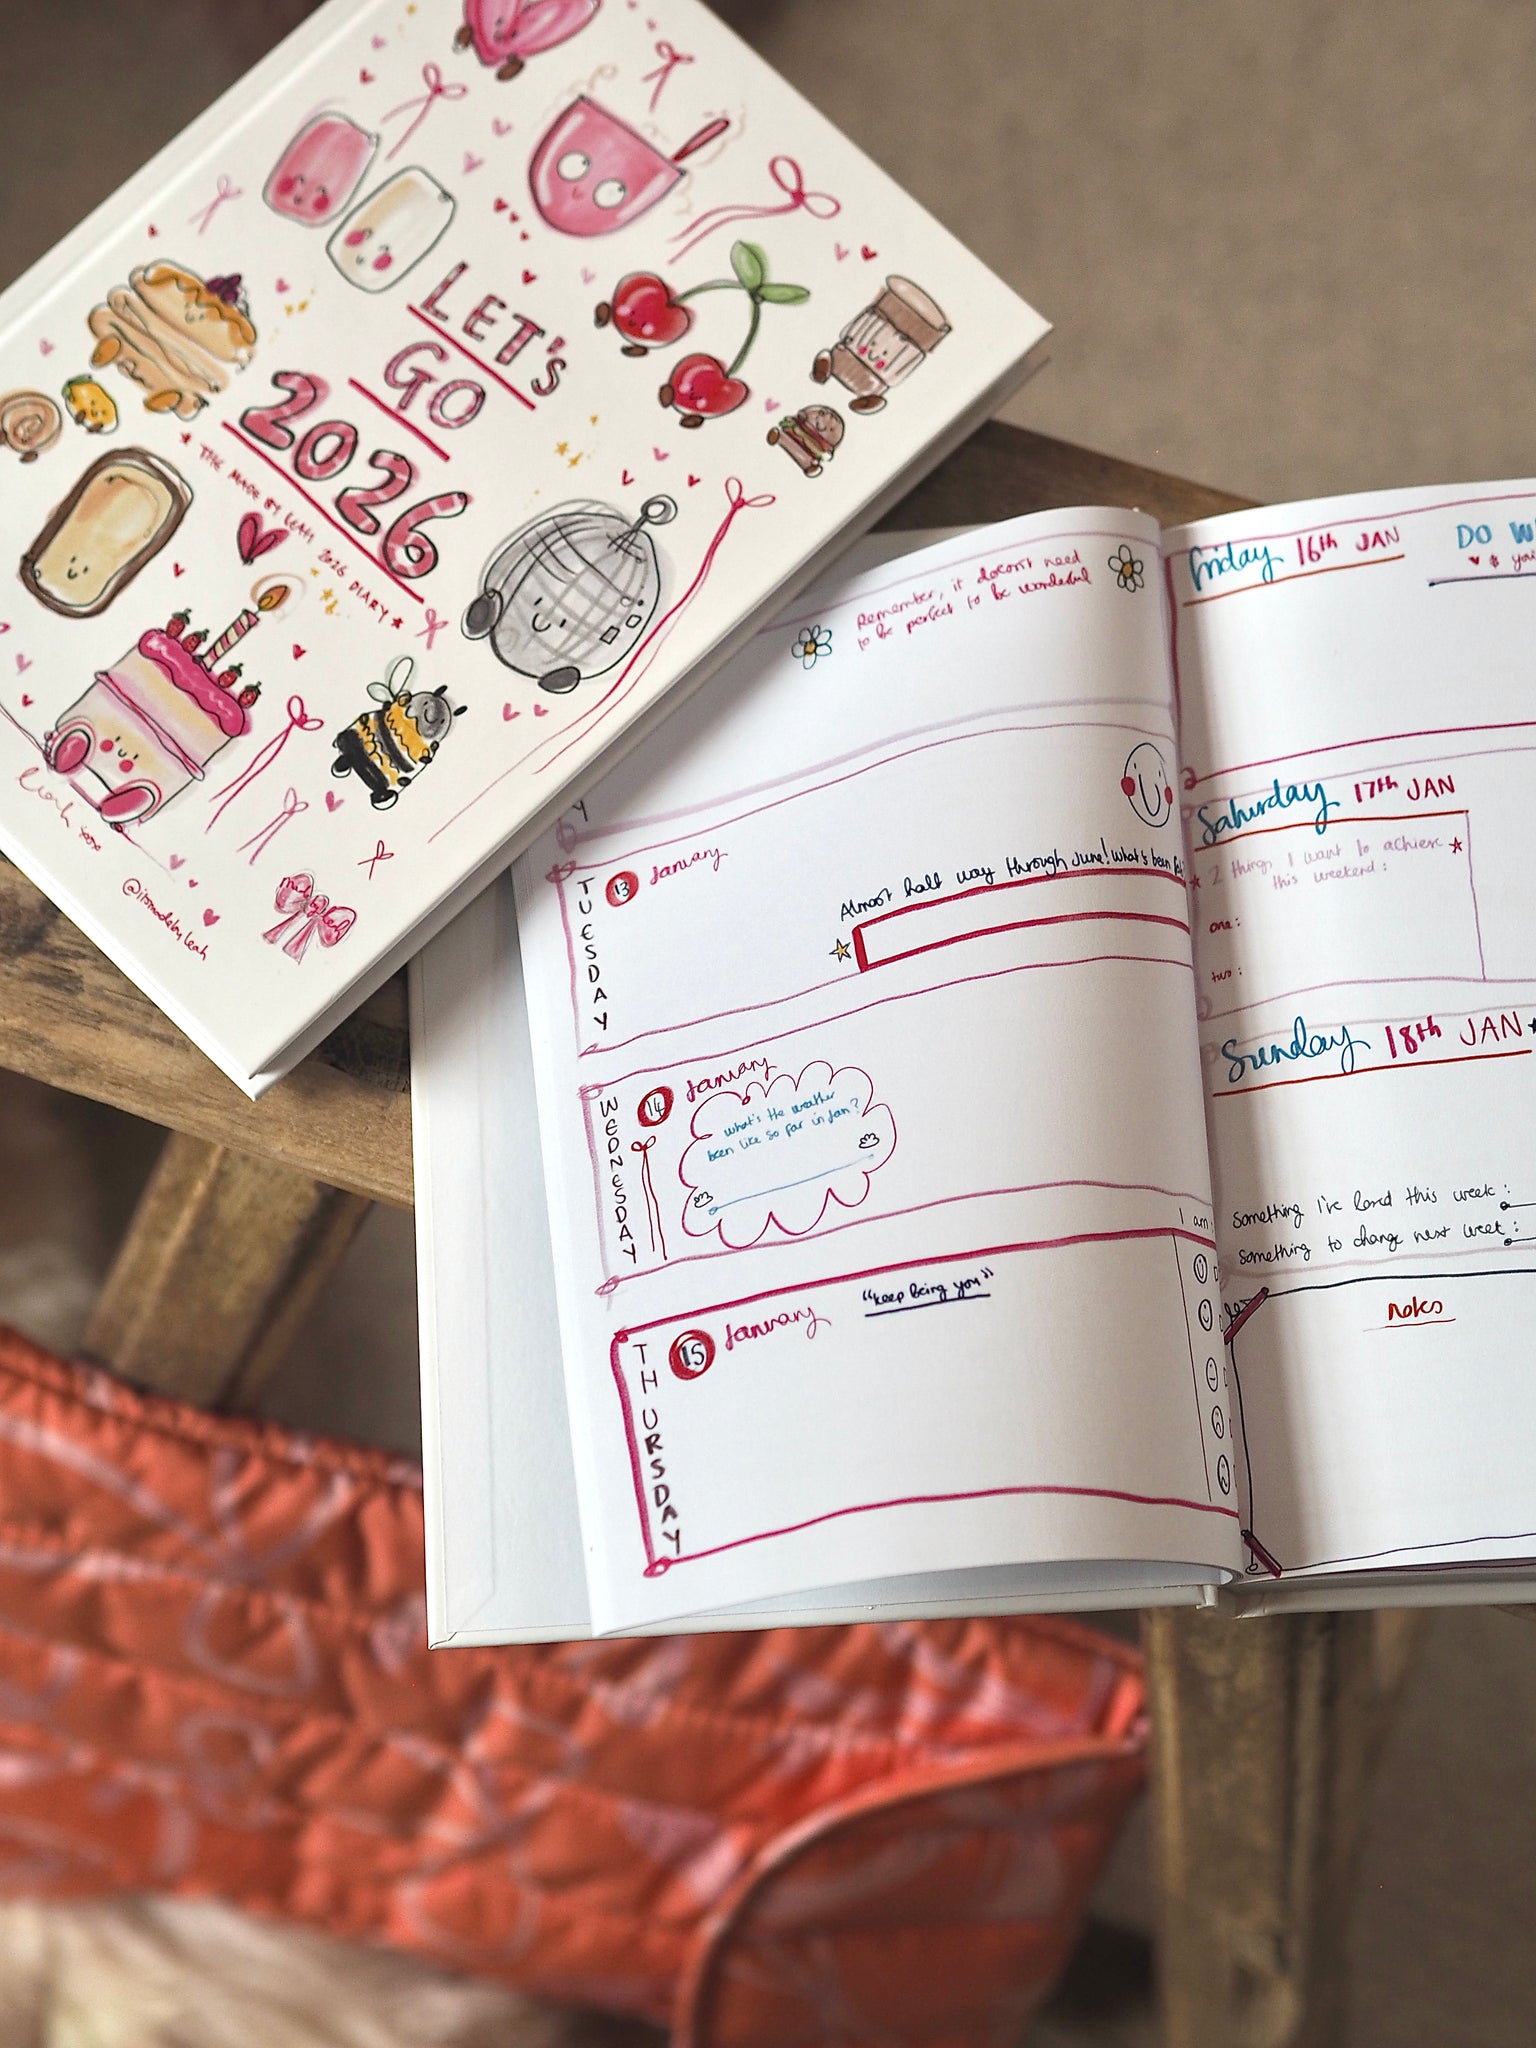 LET'S
GO
2026
THE MADE BY LEAH 2026 DIARY
@itsmadebyleah
made by leah
Remember, it doesn't need
to be perfect to be wonderful
Y
TUESDAY
13 January
Almost half way through June! What's been
WEDNESDAY
14 January
What's the weather
been like so far in Jan?
I am:
THURSDAY
15 January
"keep being you"
Friday 16th JAN
DO W
Saturday 17th JAN
2 things I want to achieve
this weekend:
one:
two:
Sunday 18th JAN
Something I've loved this week:
Something to change next week:
notes